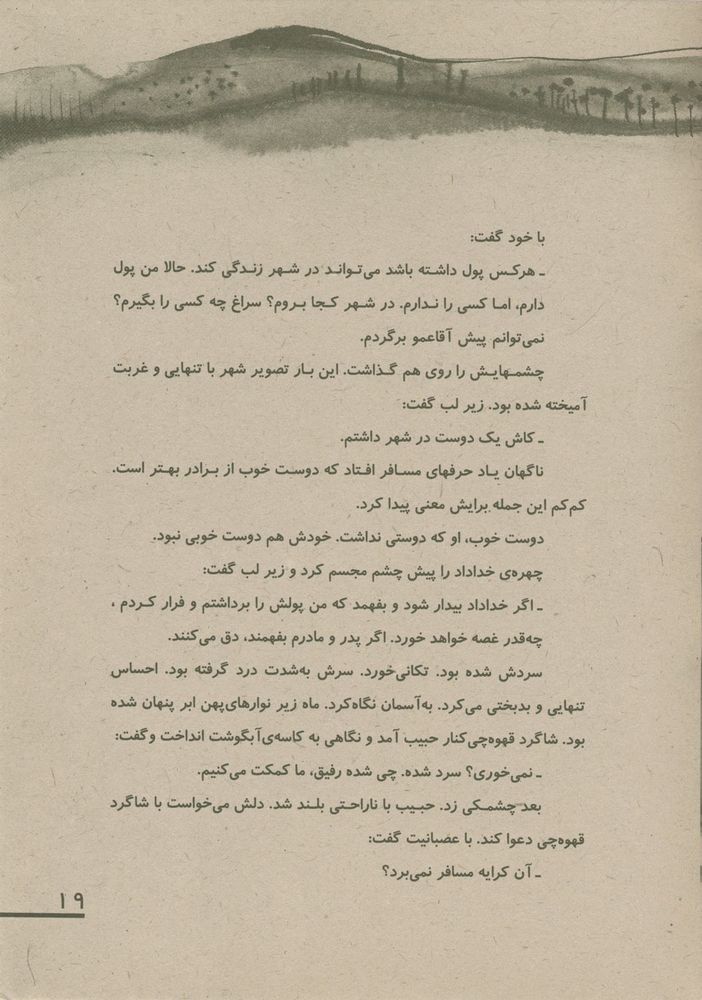 با خود گفت:
ـ هرکس پول داشته باشد می‌تواند در شهر زندگی کند. حالا من پول
دارم، اما کسی را ندارم. در شهر کجا بروم؟ سراغ چه کسی را بگیرم؟
نمی‌توانم پیش آقاعمو برگردم.
چشمهایش را روی هم گذاشت. این بار تصویر شهر با تنهایی و غربت
آمیخته شده بود. زیر لب گفت:
ـ کاش یک دوست در شهر داشتم.
ناگهان یاد حرفهای مسافر افتاد که دوست خوب از برادر بهتر است.
کم‌کم این جمله برایش معنی پیدا کرد.
دوست خوب، او که دوستی نداشت. خودش هم دوست خوبی نبود.
چهره‌ی خداداد را پیش چشم مجسم کرد و زیر لب گفت:
ـ اگر خداداد بیدار شود و بفهمد که من پولش را برداشتم و فرار کردم ،
چه‌قدر غصه خواهد خورد. اگر پدر و مادرم بفهمند، دق می‌کنند.
سردش شده بود. تکانی‌خورد. سرش به‌شدت درد گرفته بود. احساس
تنهایی و بدبختی می‌کرد. به‌آسمان نگاه‌کرد. ماه زیر نوارهای‌پهن ابر پنهان شده
بود. شاگرد قهوه‌چی‌کنار حبیب آمد و نگاهی به کاسه‌ی‌آبگوشت انداخت و گفت:
ـ نمی‌خوری؟ سرد شده. چی شده رفیق، ما کمکت می‌کنیم.
بعد چشمکی زد. حبیب با ناراحتی بلند شد. دلش می‌خواست با شاگرد
قهوه‌چی دعوا کند. با عصبانیت گفت:
ـ آن کرایه مسافر نمی‌برد؟
۱۹